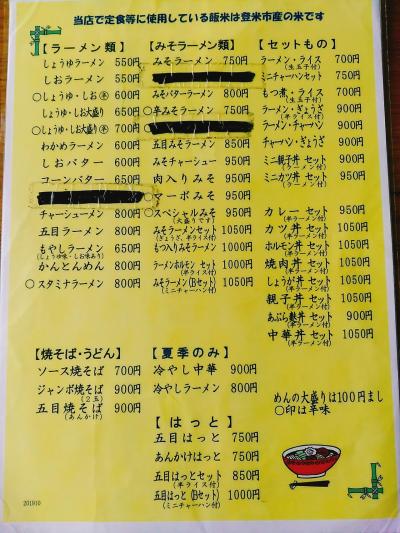 当店で定食等に使用している飯米は登米市産の米です
【ラーメン類】
しょうゆラーメン 550円
しおラーメン 550円
○しょうゆ・しお㊛ 600円
しょうゆ・しお大盛り 650円
○しょうゆ・しお大盛り㊛ 700円
わかめラーメン 600円
しおバター 600円
コーンバター 650円
チャーシューメン 800円
五目ラーメン 800円
もやしラーメン 650円
(しょうゆ味・しお味あり)
かんとんめん 800円
○スタミナラーメン 800円
【焼そば・うどん】
ソース焼そば 700円
ジャンボ焼そば 900円
(2玉)
五目焼そば 900円
(あんかけ)
【みそラーメン類】
みそラーメン 750円
みそバターラーメン 800円
○辛みそラーメン 750円
五目みそラーメン 800円
みそチャーシュー 950円
肉入りみそ 950円
○マーボみそ 950円
○スペシャルみそ 950円
(大盛りです)
みそラーメンセット 1050円
(ぎょうざ、半ライス付)
もつ入りみそラーメン 1000円
ラーメンホルモン セット 1050円
(半ライス付)
みそラーメン(Bセット) 1050円
(ミニチャーハン付)
【夏季のみ】
冷やし中華 900円
冷やしラーメン 800円
【はっと】
五目はっと 750円
あんかけはっと 750円
五目はっとセット 850円
(半ライス付)
五目はっと (Bセット) 1000円
(ミニチャーハン付)
【セットもの】
ラーメン・ライス 700円
(生玉子付)
ミニチャーハンセット 750円
もつ煮・ライス 700円
(生玉子付)
ラーメン・ぎょうざ 900円
(半ライス付)
ラーメン・チャーハン 900円
チャーハン・ぎょうざ 900円
ミニ親子丼 セット 950円
(ラーメン付)
ミニカツ丼 セット 950円
(ラーメン付)
カレー セット 950円
(半ラーメン付)
カツ丼 セット 1050円
(半ラーメン付)
ホルモン丼 セット 1050円
(半ラーメン付)
焼肉丼 セット 1050円
(半ラーメン付)
しょうが丼 セット 1050円
(半ラーメン付)
親子丼 セット 1050円
(半ラーメン付)
あぶら麩丼 セット 900円
(半ラーメン付)
中華丼 セット 1050円
(半ラーメン付)
めんの大盛りは100円まし
○印は辛味
201910